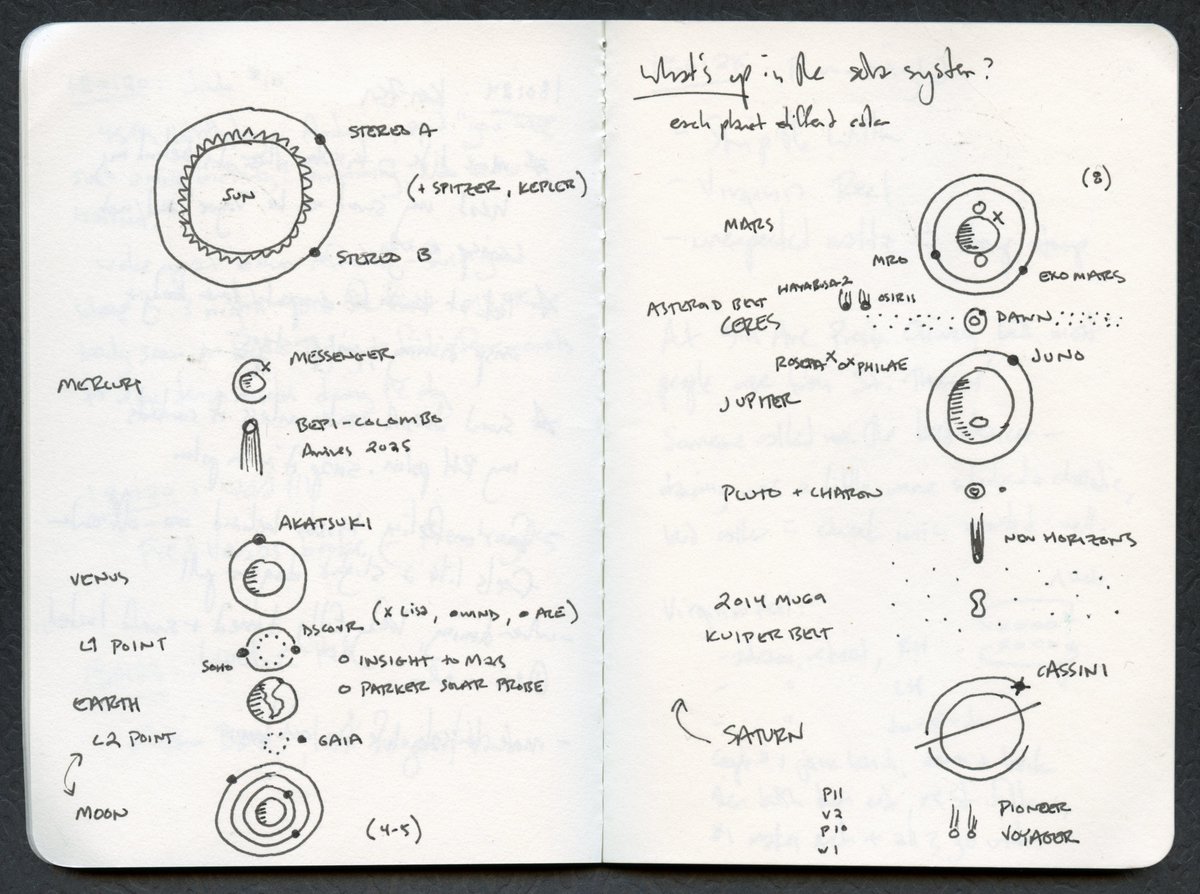 STEREO A
SUN
(+ SPITZER, KEPLER)
STEREO B
MESSENGER
MERCURY
BEPI-COLOMBO
Arrives 2025
AKATSUKI
VENUS
(x LISA, •WIND, •ACE)
L1 POINT
DSCOVR
SOHO
O INSIGHT to MARS
O PARKER SOLAR PROBE
EARTH
L2 POINT
GAIA
MOON
(4-5)
What's up in the solar system?
each planet different color
(8)
MARS
x
MRO
EXOMARS
HAYABUSA-2
OSIRIS
ASTEROID BELT
CERES
DAWN
ROSETTA x O x PHILAE
JUNO
JUPITER
PLUTO + CHARON
NEW HORIZONS
2014 MU69
KUIPER BELT
CASSINI
SATURN
P11
V2
P10
V1
PIONEER
VOYAGER